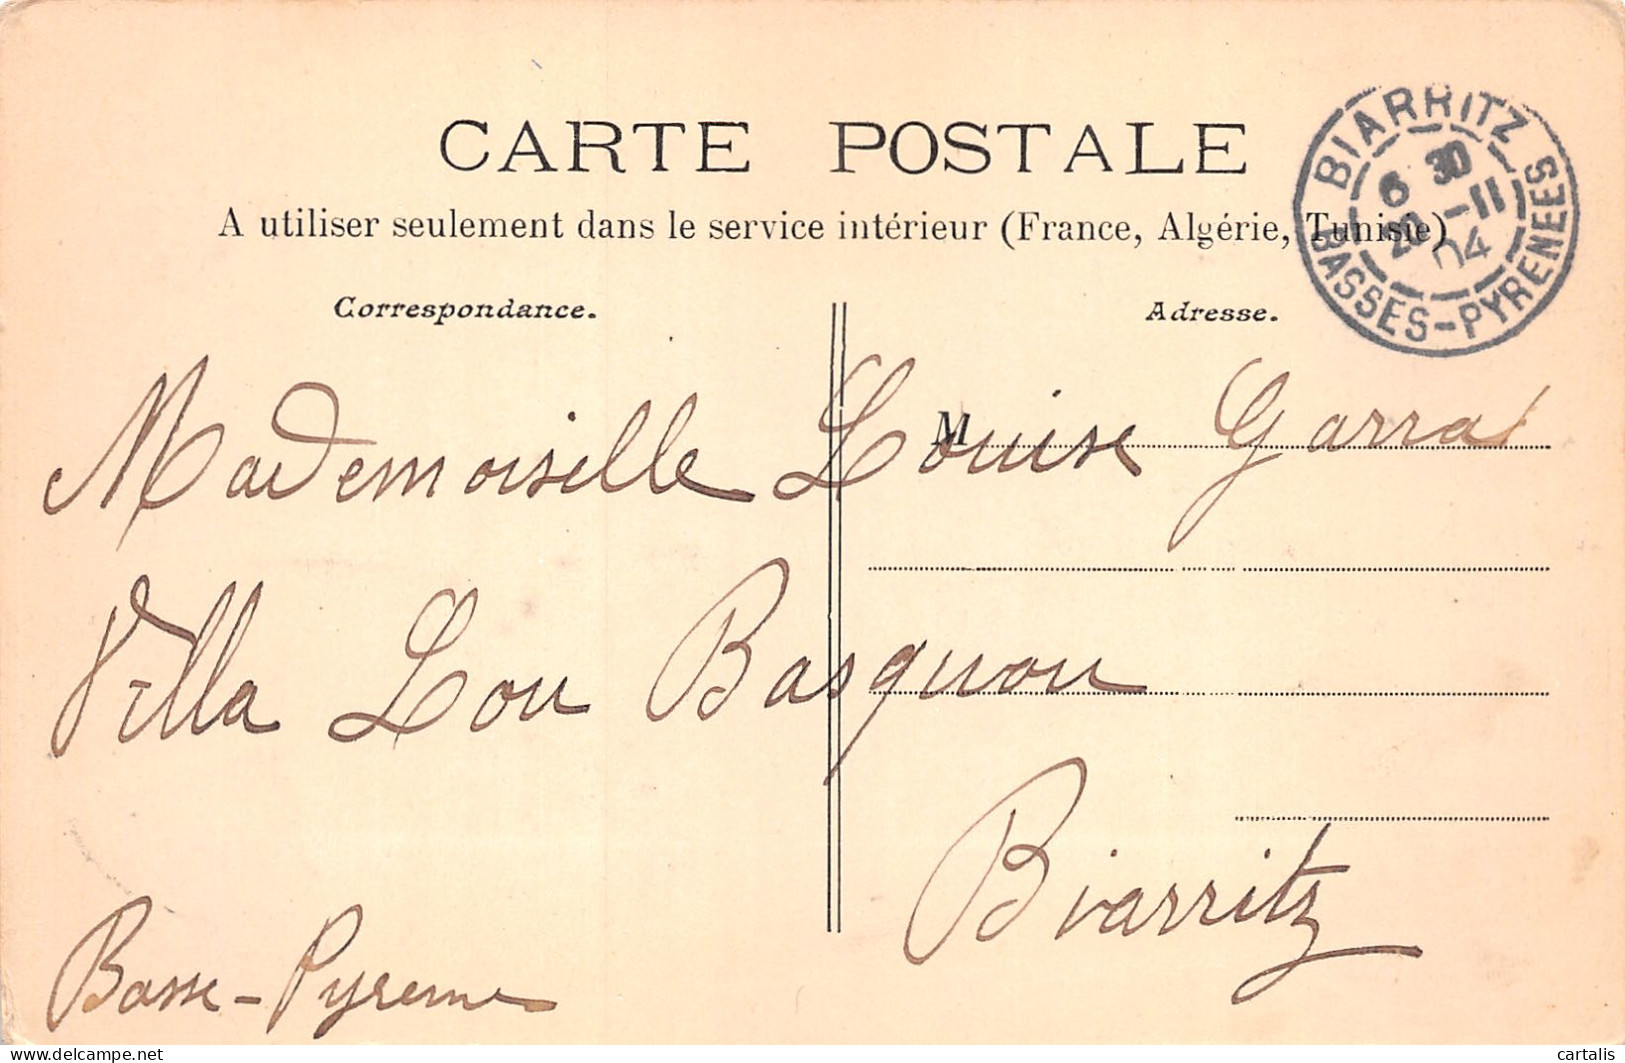 CARTE POSTALE
A utiliser seulement dans le service intérieur (France, Algérie, Tunisie)
BIARRITZ
6 30
25 -11
04
BASSES-PYRENEES
Correspondance.
Adresse.
M
Mademoiselle Louise Garrat
Villa Lou Basquou
Biarritz
Basse-Pyrenne
www.delcampe.net
cartalis